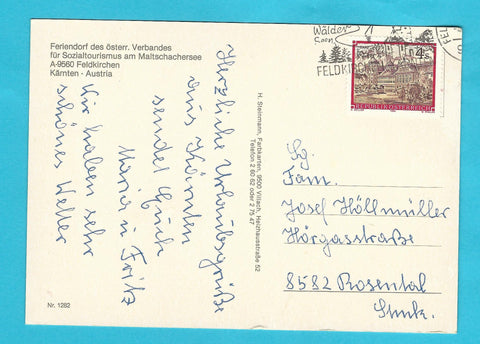 Feriendorf des österr. Verbandes
für Sozialtourismus am Maltschachersee
A-9560 Feldkirchen
Kärnten - Austria
Herzliche Urlaubsgrüße
aus Kärnten
sendet Euch
Maria u. Fritz
Wir haben sehr
schönes Wetter
Nr. 1282
H. Steinmann, Farbkarten, 9500 Villach, Heizhausstraße 52
Telefon 2 60 62 oder 2 75 47
Wälder
Seen
FELDKIRCHEN
4
REPUBLIK ÖSTERREICH
Sg.
Fam.
Josef Höllmüller
Hörgasstraße
8582 Rosental
Stmk.